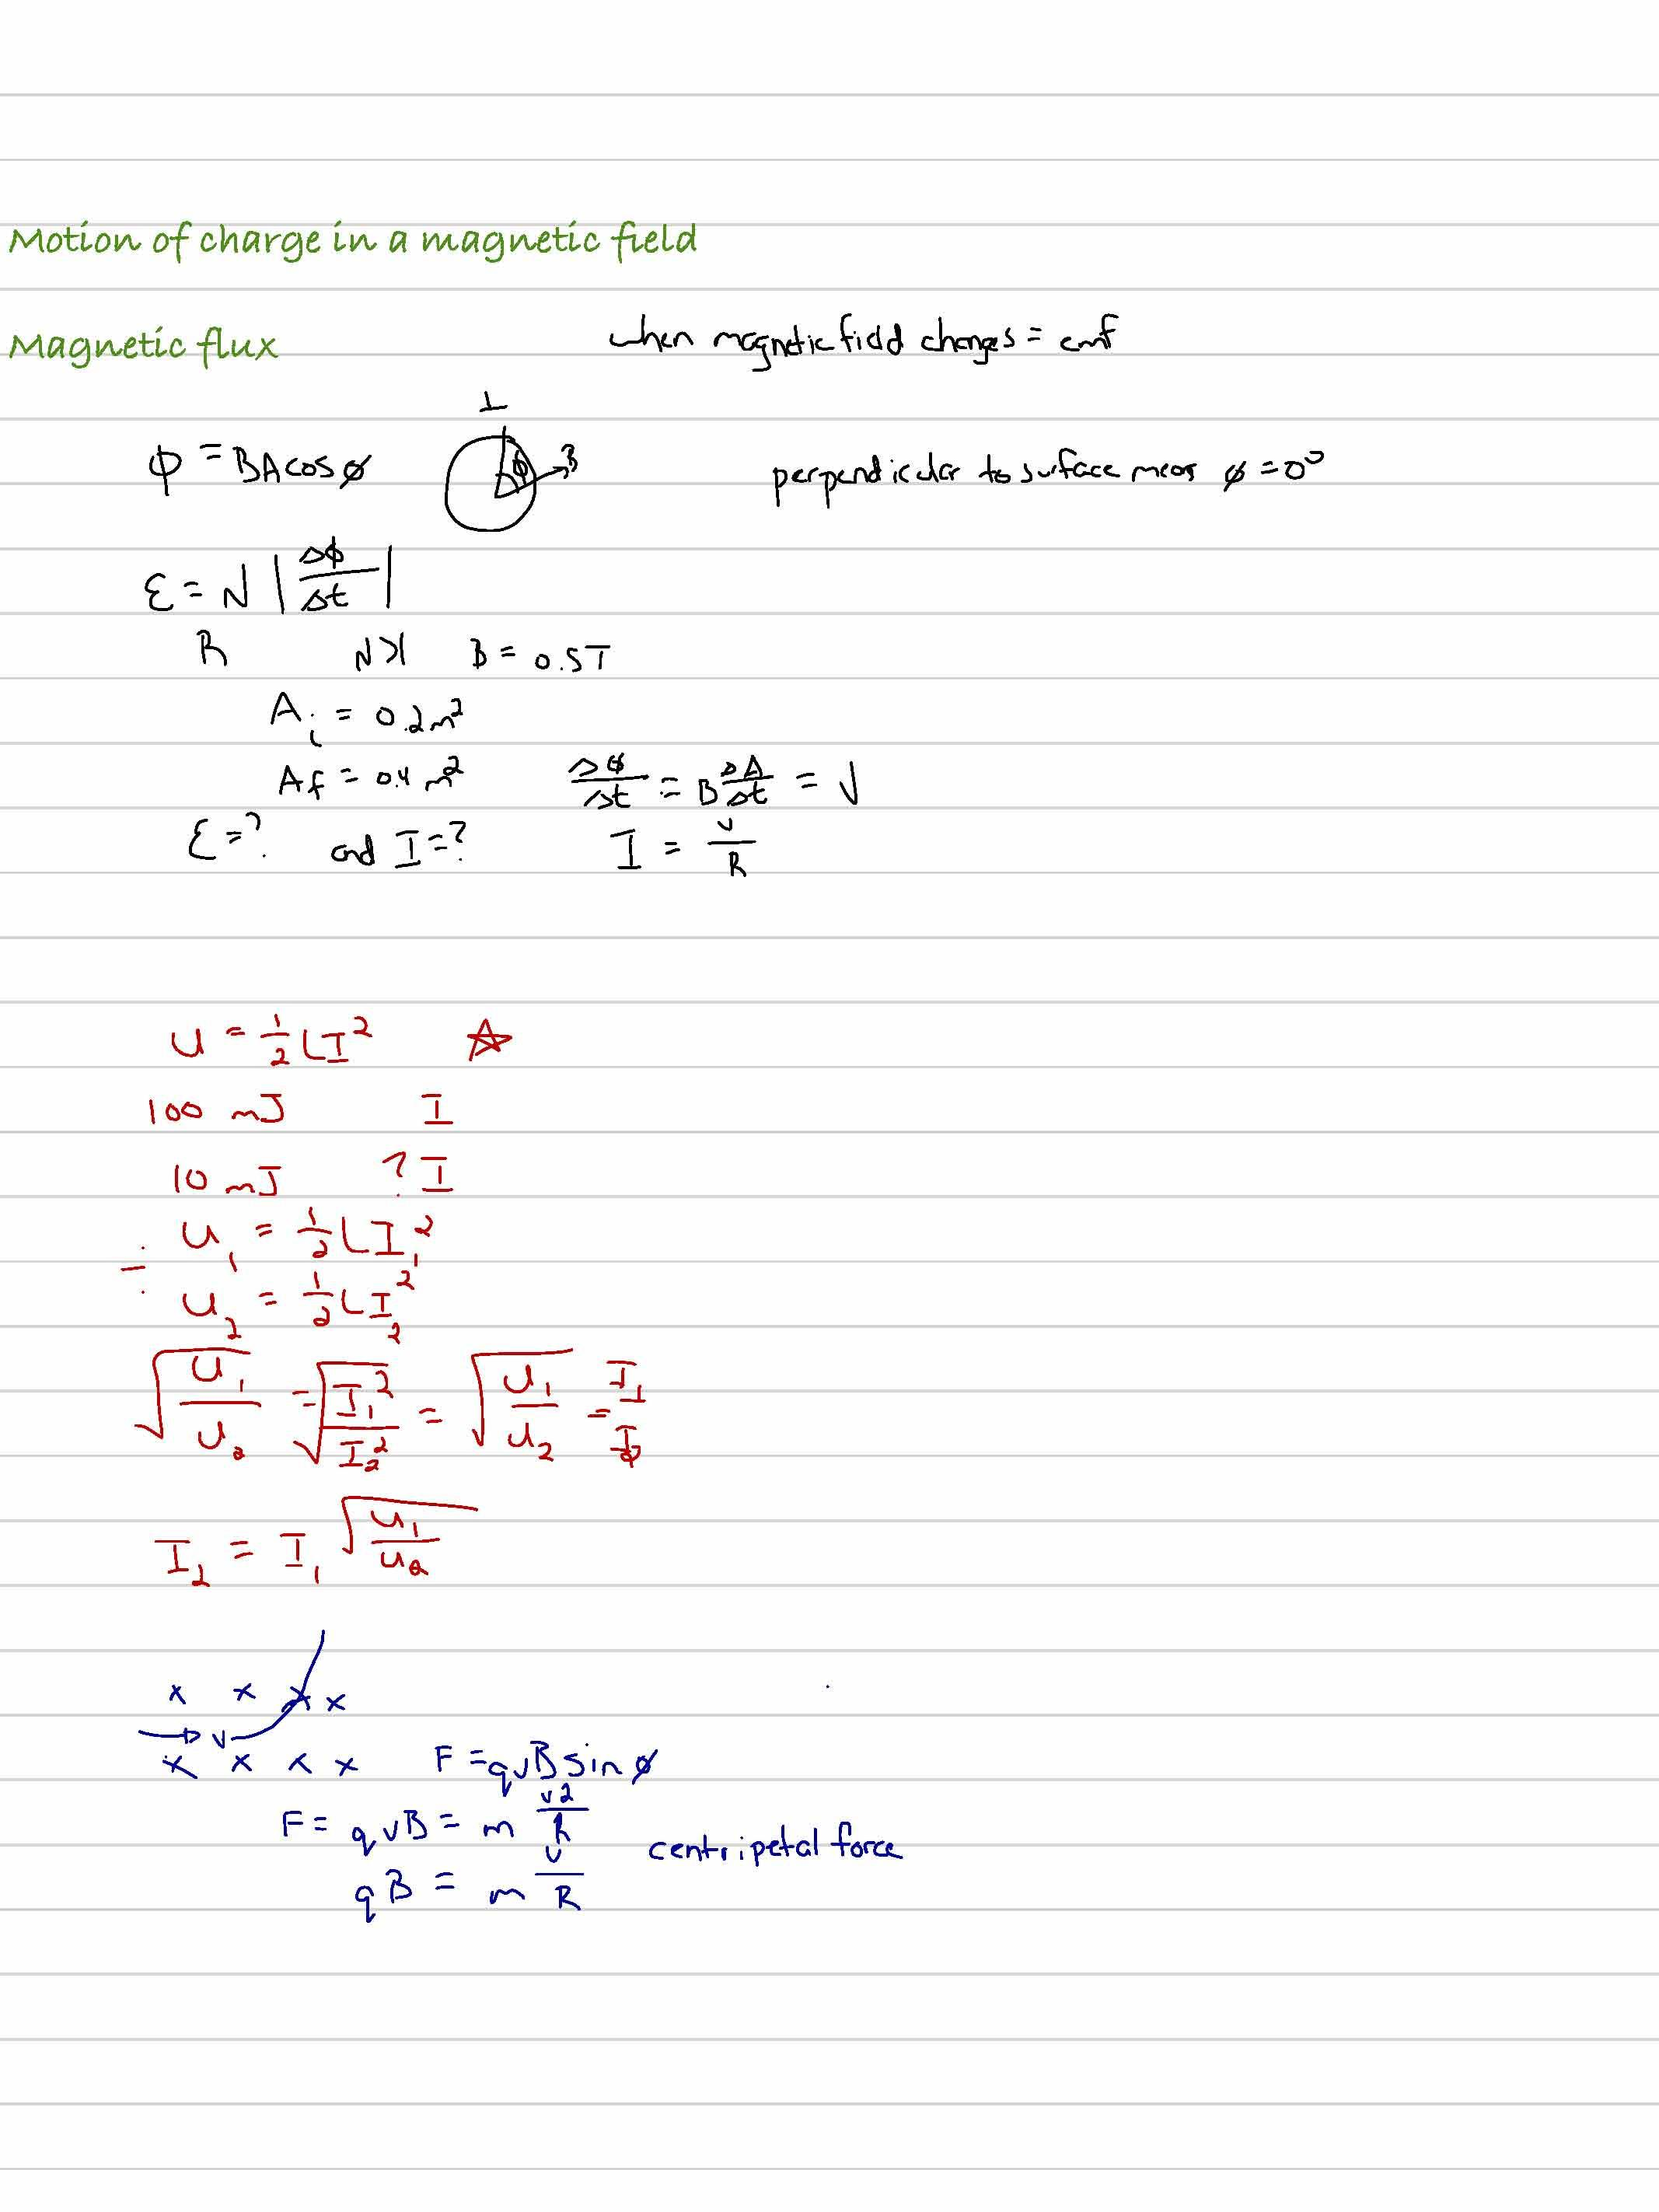 Motion of charge in a magnetic field
Magnetic flux when magnetic field changes = emf
⊥
Φ = BA cos ϕ ϕ B perpendicular to surface means ϕ = 0°
ε = N |Δϕ/Δt|
R N B = 0.5T
A_i = 0.2 m²
A_f = 0.4 m² Δϕ/Δt = B ΔA/Δt = V
ε = ? and I = ? I = V/R
U = 1/2 LI² ☆
100 mJ I
10 mJ ? I
÷ U₁ = 1/2 LI₁²
U₂ = 1/2 LI₂²
√(U₁/U₂) = √(I₁²/I₂²) = √(U₁/U₂) = I₁/I₂
I₂ = I₁ √(U₁/U₂)
x x x x
→ v
x x x x F = qvB sin ϕ
F = qvB = m v2/R centripetal force
qB = m v/R